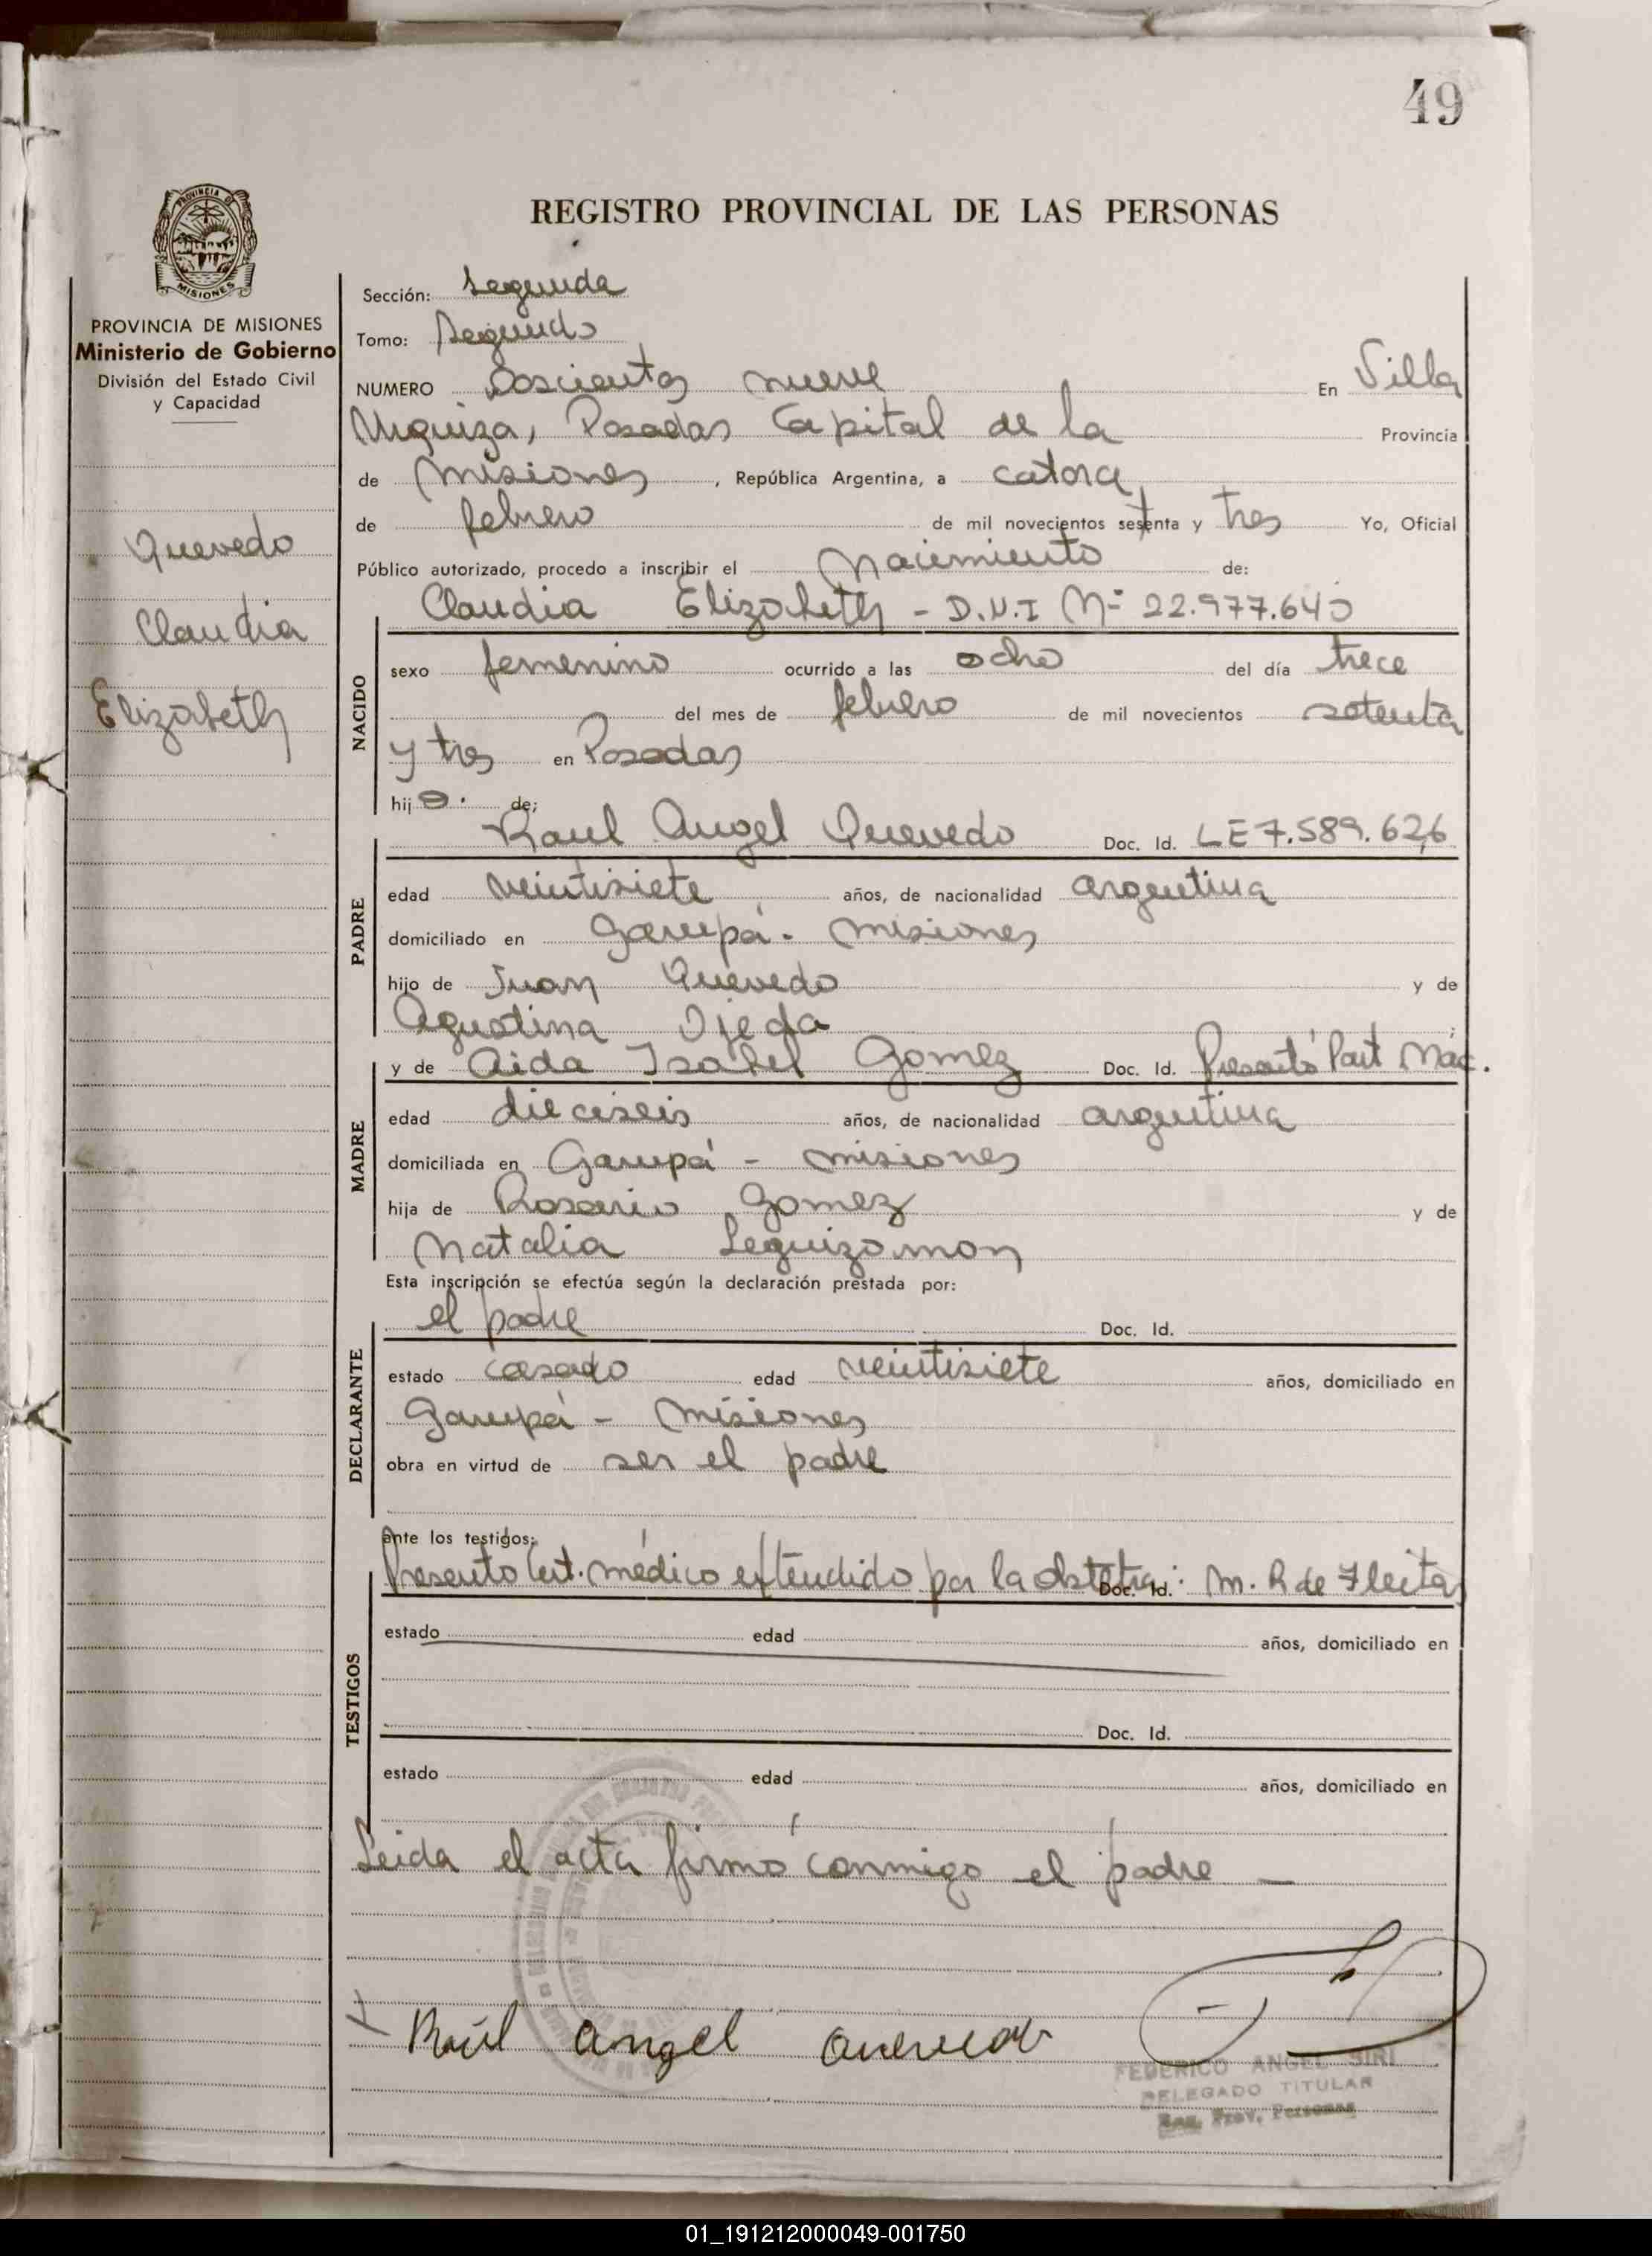 49
REGISTRO PROVINCIAL DE LAS PERSONAS
PROVINCIA DE
MISIONES
PROVINCIA DE MISIONES
Ministerio de Gobierno
División del Estado Civil
y Capacidad
Quevedo
Claudia
Elizabeth
Sección: Segunda
Tomo: Segundo
NUMERO Doscientos nueve En Villa
Urquiza, Posadas Capital de la Provincia
de Misiones, República Argentina, a catorce
de febrero de mil novecientos setenta y tres Yo, Oficial
Público autorizado, procedo a inscribir el Nacimiento de:
Claudia Elizabeth - D.N.I Nº 22.977.640
NACIDO
sexo femenino ocurrido a las ocho del día trece
del mes de febrero de mil novecientos setenta
y tres en Posadas
hija. de;
Raul Angel Quevedo Doc. Id. LE 7.589.626
PADRE
edad veintisiete años, de nacionalidad argentina
domiciliado en Garupá - Misiones
hijo de Juan Quevedo y de
Agustina Ojeda ;
y de Aida Isabel Gomez Doc. Id. Presentó Part Nac.
MADRE
edad dieciseis años, de nacionalidad argentina
domiciliada en Garupá - misiones
hija de Rosario Gomez y de
Natalia Leguizamon
Esta inscripción se efectúa según la declaración prestada por:
el padre Doc. Id.
DECLARANTE
estado casado edad veintisiete años, domiciliado en
Garupá - Misiones
obra en virtud de ser el padre
ante los testigos:
Presento Cert. médico extendido por la obstetra: Doc. Id. M. R de Fleitas
TESTIGOS
estado edad años, domiciliado en
Doc. Id.
estado edad años, domiciliado en
Leida el acta firmó conmigo el padre —
Raúl angel quevedo
FEDERICO ANGEL SIRI
DELEGADO TITULAR
Reg. Prov. Personas
01_191212000049-001750